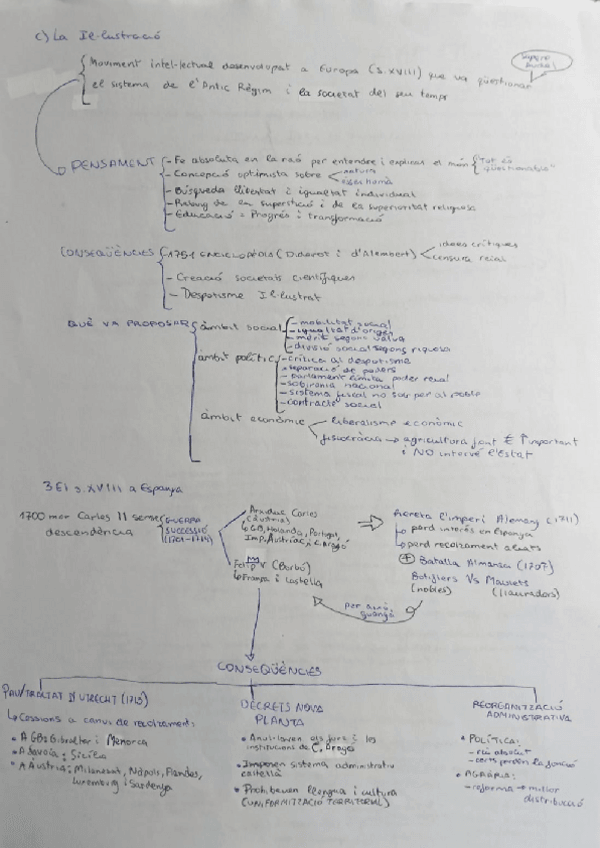 c) La Il·lustració
Moviment intel·lectual desenvolupat a Europa (s.XVIII) que va qüestionar
el sistema de l'Antic Règim i la societat del seu temps
PENSAMENT
- Fe absoluta en la raó per entendre i explicar el món "Tot és qüestionable"
- Concepció optimista sobre natura
- Búsqueda llibertat i igualtat individual
superstició i de la superioritat religiosa
- Educació = Progrés i transformació
CONSEQÜÈNCIES
- 1751 ENCICLOPÈDIA (Diderot i d'Alembert) idees crítiques
censura reial
- Creació societats científiques
- Despotisme Il·lustrat
QUÈ VA PROPOSAR
àmbit social
- mobilitat social
- igualtat d'origen
- mèrit segons vàlua
- divisió social segons riquesa
àmbit polític
- crítica al despotisme
- separació de poders
- parlament limita poder reial
- sobirania nacional
- sistema fiscal no sols per al poble
- contracte social
àmbit econòmic
liberalisme econòmic
fisiocràcia → agricultura font € ↑important
i NO intervé l'Estat
3 El s.XVIII a Espanya
1700 mor Carles II sense
descendència
GUERRA
SUCCESSIÓ
(1701-1714)
Arxiduc Carles
(Àustria)
↳ GB, Holanda, Portugal,
Imp. Austríac i C. Aragó
Felip V (Borbó)
↳ França i Castella
Hereta l'imperi Alemany (1711)
↳ perd interés en Espanya
↳ perd recolzament aliats
⊕ Batalla Almansa (1707)
Botiflers Vs Maulets
(nobles) (llauradors)
per això,
guanya
CONSEQÜÈNCIES
PAU/TRACTAT D'UTRECHT (1713)
↳ Cessions a canvi de recolzament:
• A GB: Gibraltar i Menorca
• A Savoia: Sicília
• A Àustria: Milanesat, Nàpols, Flandes,
Luxemburg i Sardenya
DECRETS NOVA
PLANTA
els furs i les
institucions de C. Aragó
• Imposen sistema administratiu
castellà
• Prohibeixen llengua i cultura
(UNIFORMITZACIÓ TERRITORIAL)
REORGANITZACIÓ
ADMINISTRATIVA
• POLÍTICA:
- rei absolut
- corts perden la funció
• AGRÀRIA:
- reforma → millor
distribució